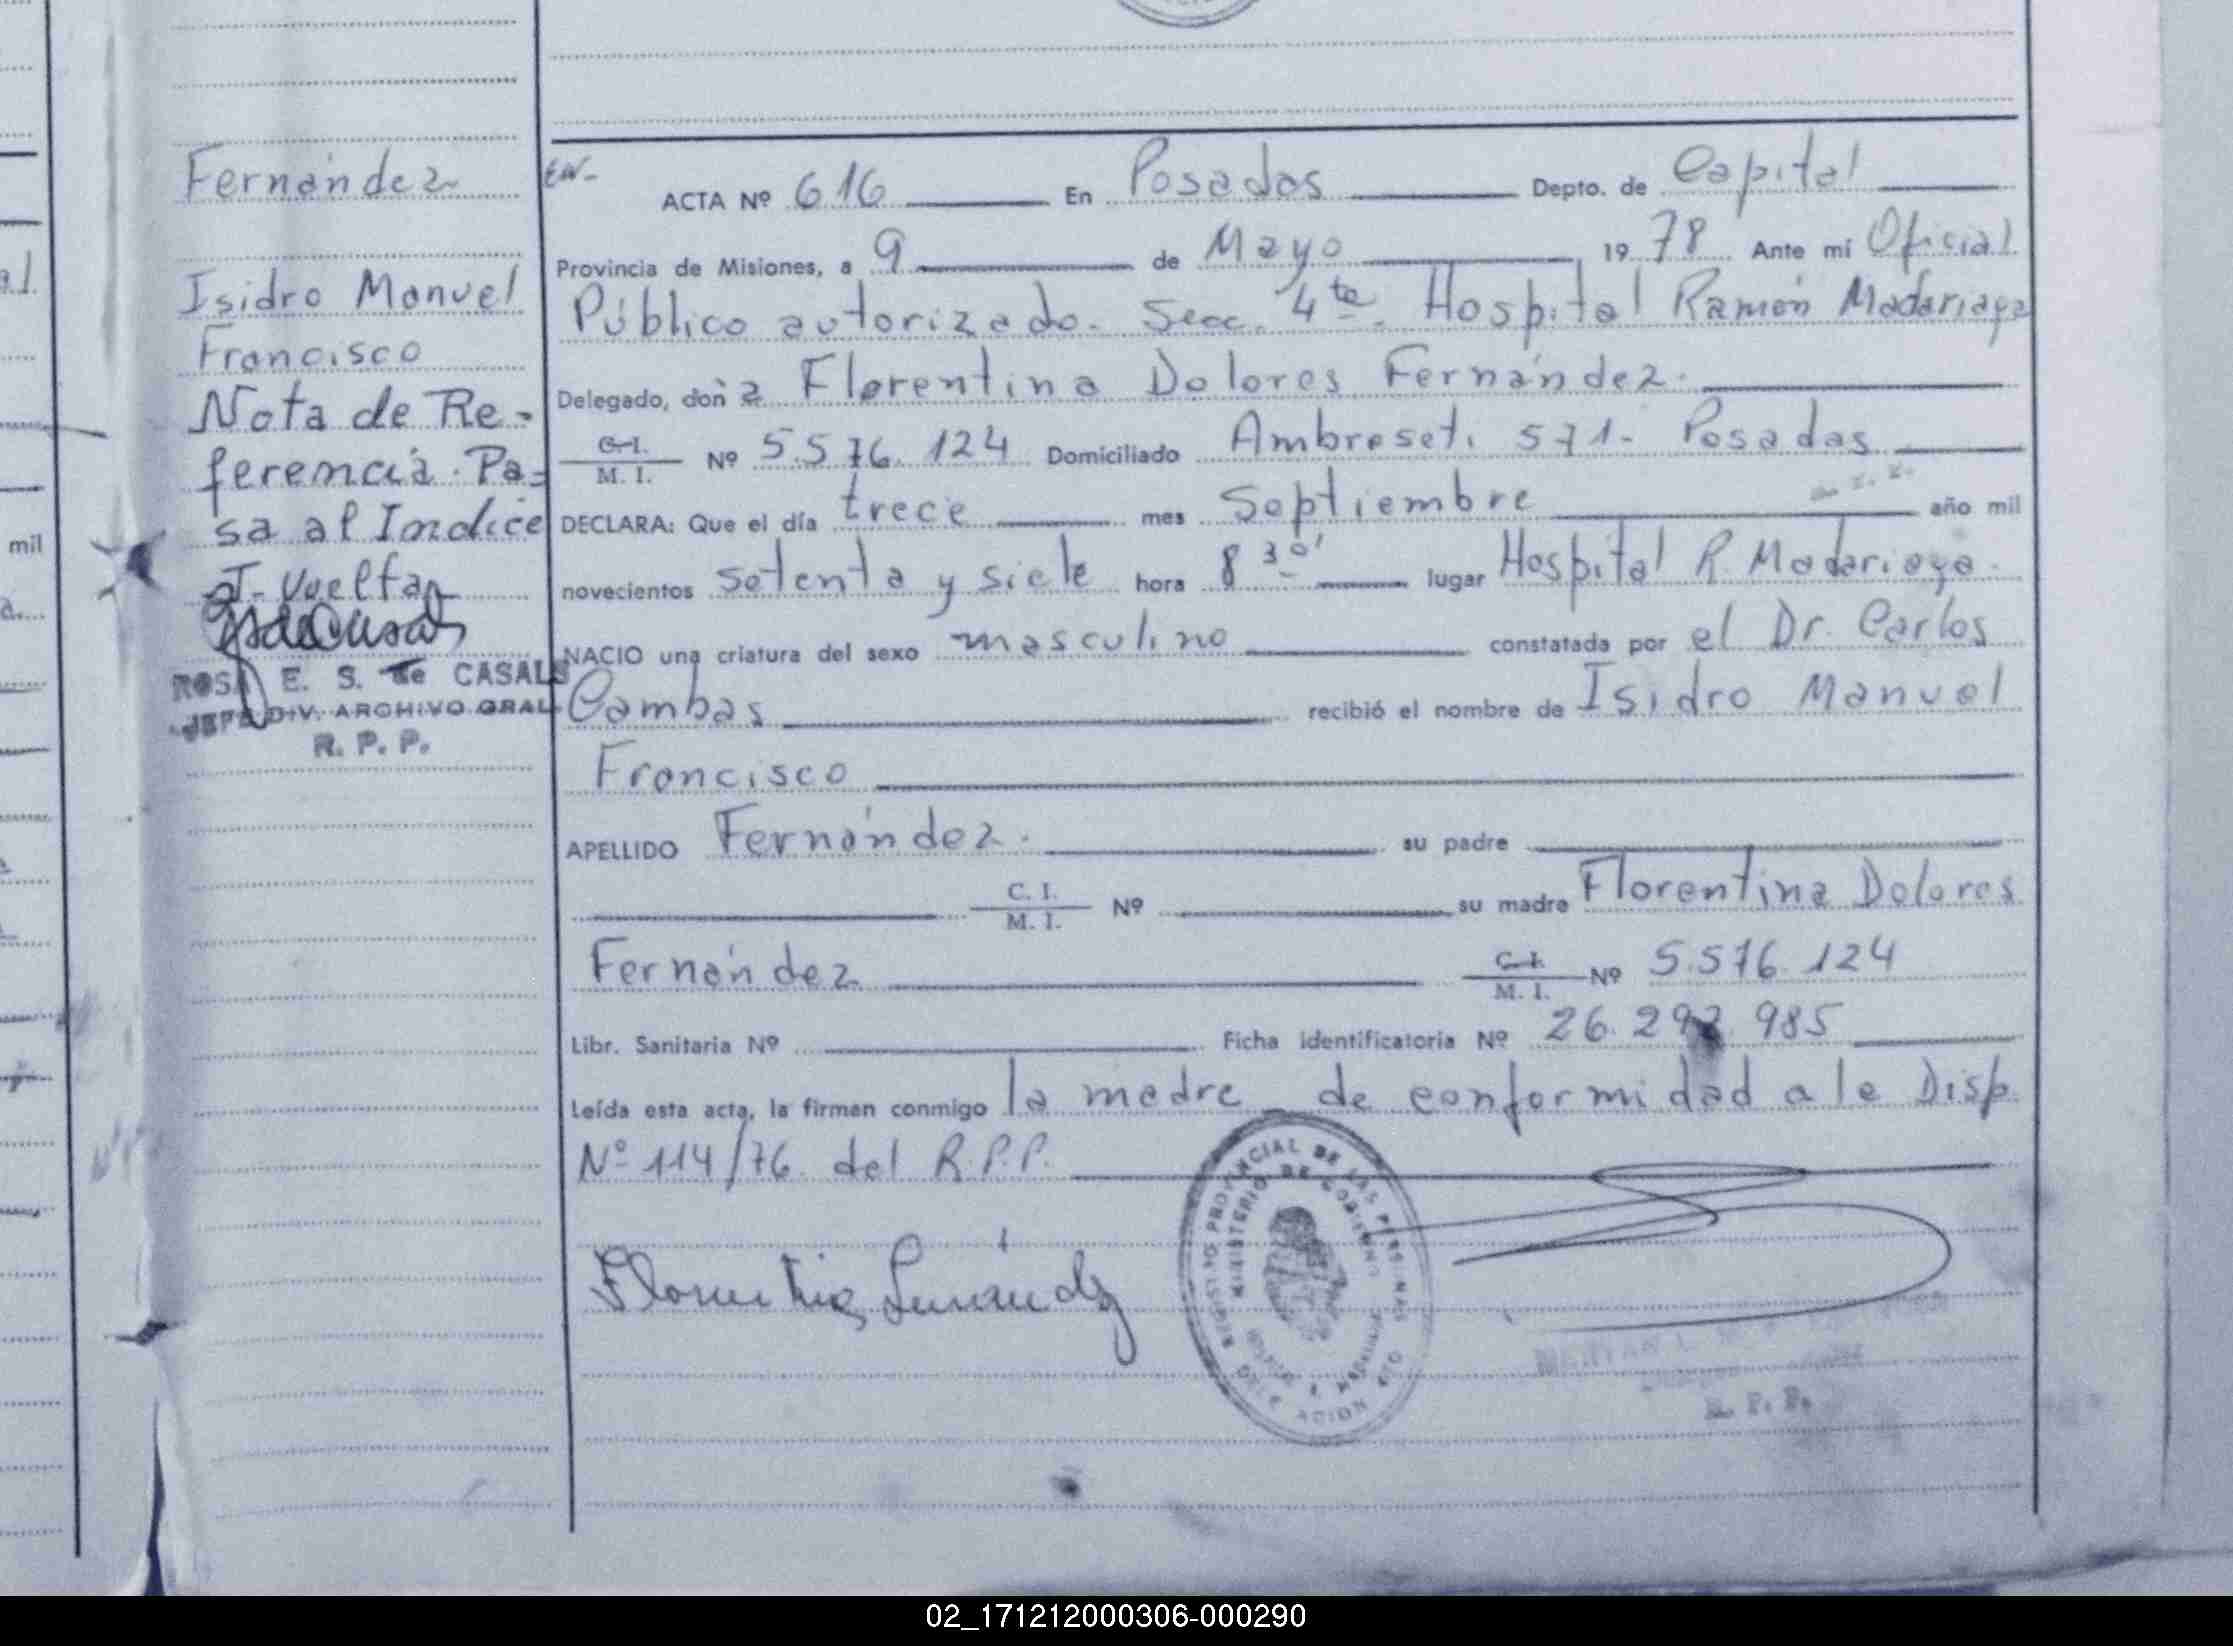 Fernández
Isidro Manuel
Francisco
Nota de Re-
ferencia. Pa=
sa al Indice
Vuelta
ROSA E. S. de CASALS
JEFE DIV. ARCHIVO GRAL
R. P. P.
ACTA Nº 616 En Posadas Depto. de Capital
Provincia de Misiones, a 9 de Mayo 19 78 Ante mi Oficial
Público autorizado. Secc. 4ta. Hospital Ramón Madariaga
Delegado, don a Florentina Dolores Fernández.
C. I. / M. I. Nº 5.576.124 Domiciliado Ambroseti 571- Posadas
DECLARA: Que el día trece mes Septiembre año mil
novecientos setenta y siete hora 8 30' lugar Hospital R. Madariaga.
NACIO una criatura del sexo masculino constatada por el Dr. Carlos
Cambas recibió el nombre de Isidro Manuel
Francisco
APELLIDO Fernández. su padre
C. I. / M. I. Nº su madre Florentina Dolores
Fernández C. I. / M. I. Nº 5.576.124
Libr. Sanitaria Nº Ficha identificatoria Nº 26.292.985
Leída esta acta, la firman conmigo la madre de conformidad a la Disp.
Nº 114/76 del R.P.P.
Florentina Fernández
REGISTRO PROVINCIAL DE LAS PERSONAS
MINISTERIO DE GOBIERNO
R. P. P.
mil
02_171212000306-000290